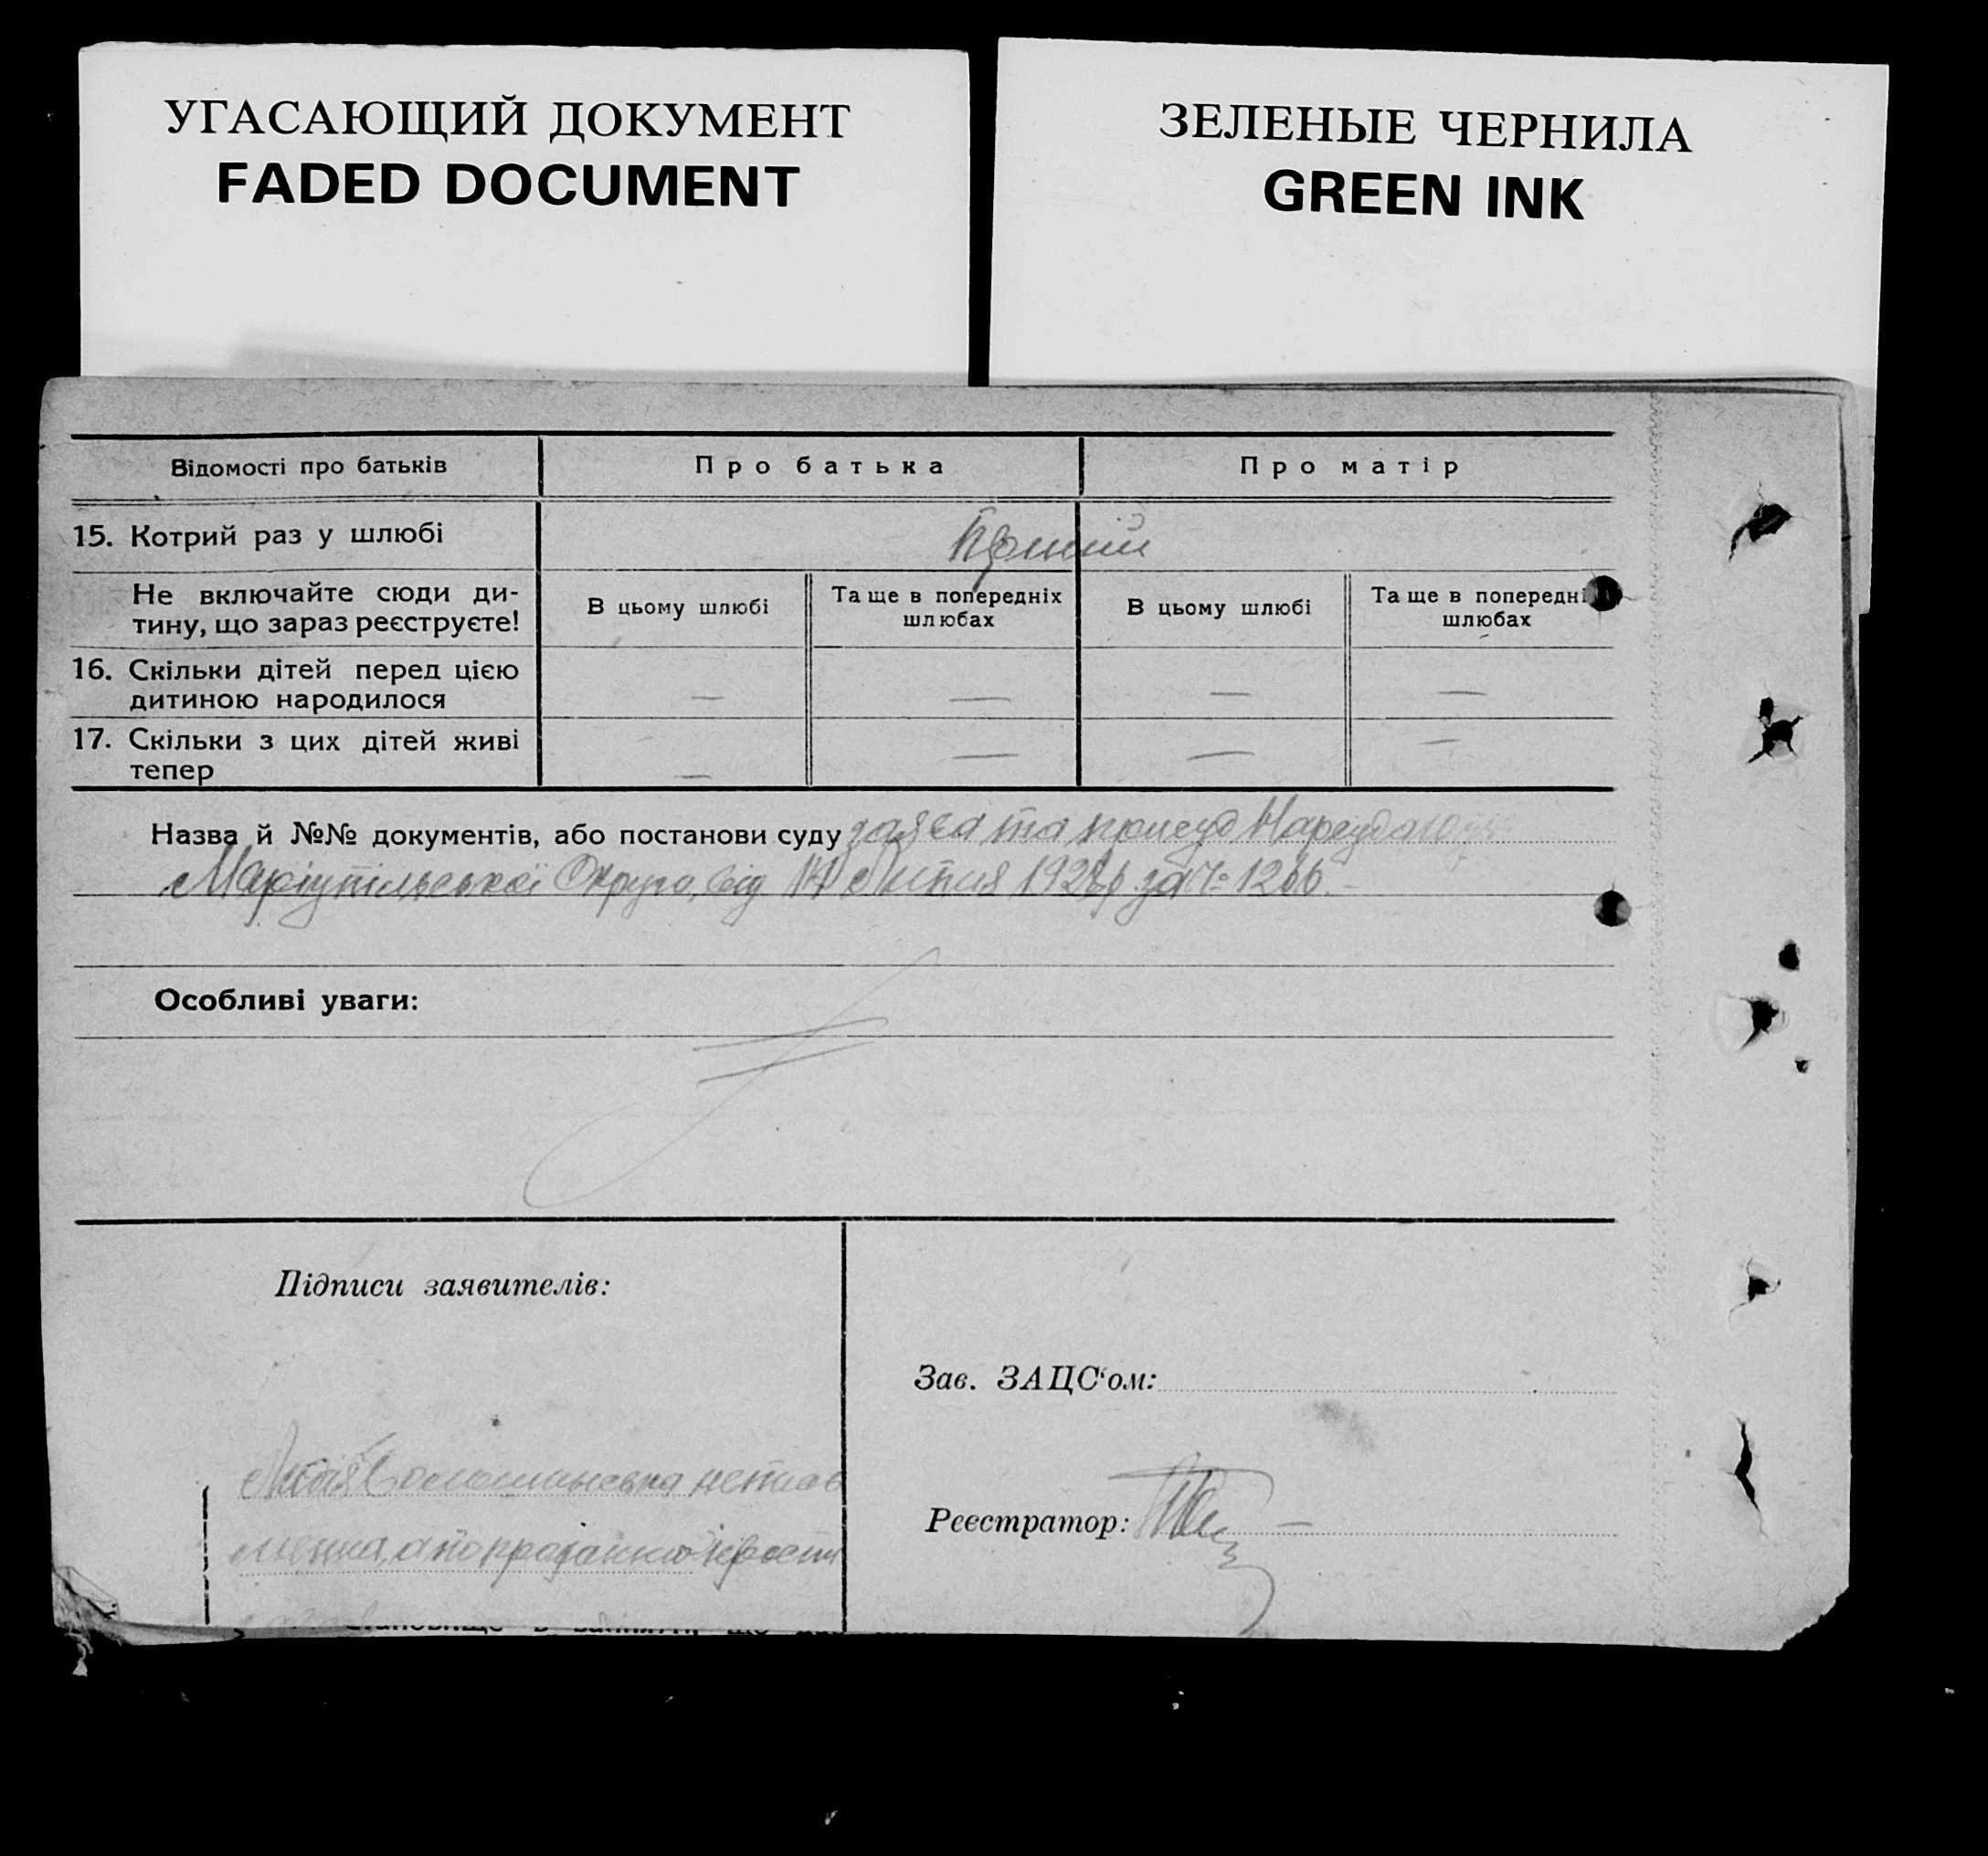 УГАСАЮЩИЙ ДОКУМЕНТ
FADED DOCUMENT
ЗЕЛЕНЫЕ ЧЕРНИЛА
GREEN INK
Відомості про батьків Про батька Про матір
15. Котрий раз у шлюбі
Не включайте сюди ди-
тину, що зараз реєструєте!
В цьому шлюбі
Та ще в попередніх
шлюбах
В цьому шлюбі
Та ще в попередні
шлюбах
16. Скільки дітей перед цією
дитиною народилося
— — — —
17. Скільки з цих дітей живі
тепер
— — — —
Назва й №№ документів, або постанови суду заява та присуд Нарсуда
Маріупільської Округи, від Липня за №
Особливі уваги:
Підписи заявителів:
Зав. ЗАЦС‘ом:
Реєстратор: